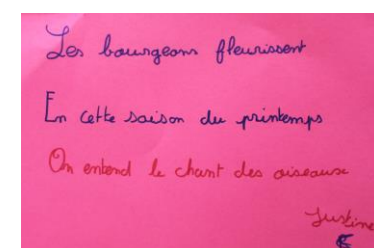 Les bourgeons fleurissent
En cette saison du printemps
On entend le chant des oiseaux
Justine